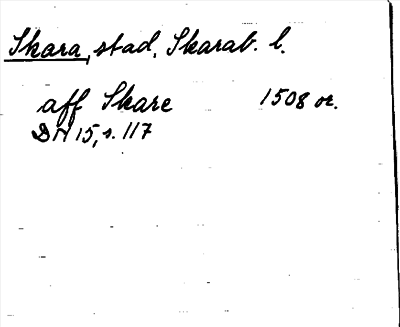 Skara, stad, Skarab. l.
aff Skare 1508 or.
DN 15, s. 117